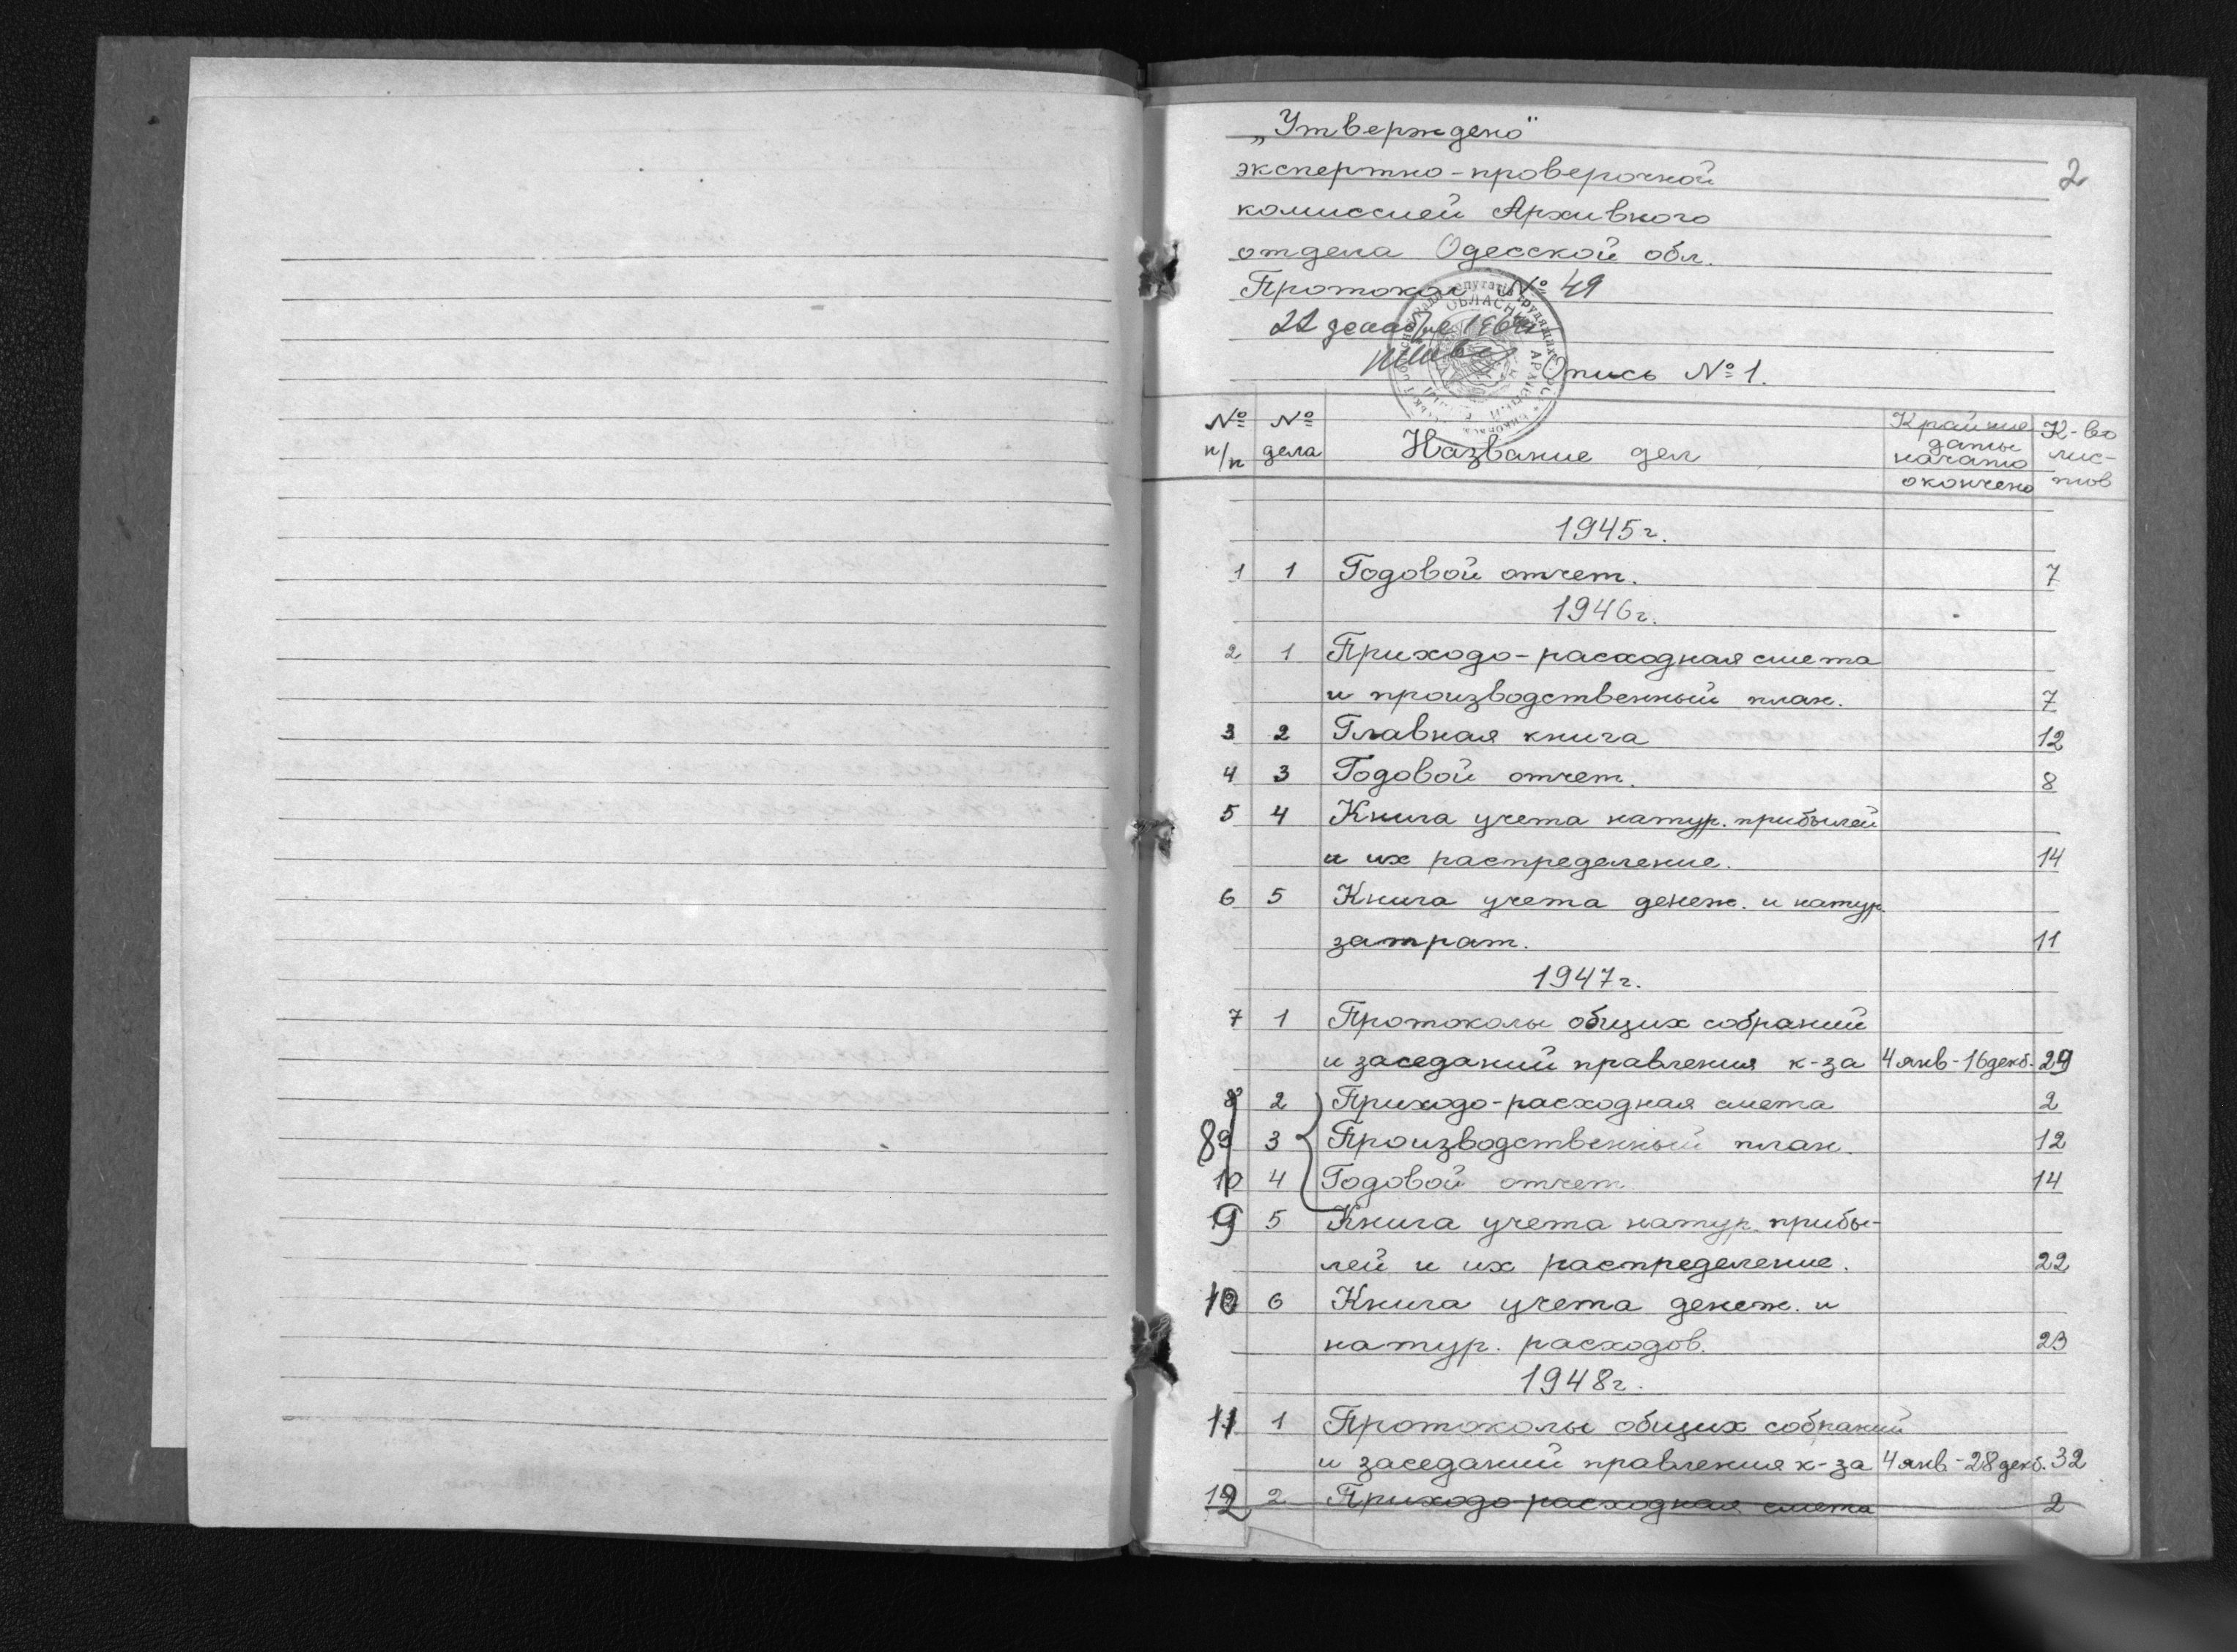 2
„Утверждено"
экспертно-проверочной
комиссией Архивного
отдела Одесской обл.
Протокол № 49
22 декабря
Опись № 1.
№ п/п № дела Название дел Крайние даты начато окончено К-во лис-тов
1945г.
1 1 Годовой отчет. 7
1946г.
2 1 Приходо-расходная смета
и производственный план. 7
3 2 Главная книга 12
4 3 Годовой отчет. 8
5 4 Книга учета натур. прибылей
и их распределение. 14
6 5 Книга учета денеж. и натур.
затрат. 11
1947г.
7 1 Протоколы общих собраний
и заседаний правления к-за 4 янв-16 декб. 29
8 2 Приходо-расходная смета 2
8 9 3 Производственный план. 12
10 4 Годовой отчет 14
9 5 Книга учета натур. прибы-
лей и их распределение. 22
10 6 Книга учета денеж. и
натур. расходов. 23
1948г.
11 1 Протоколы общих собраний
и заседаний правления к-за 4 янв-28 декб. 32
12 2 Приходо-расходная смета 2